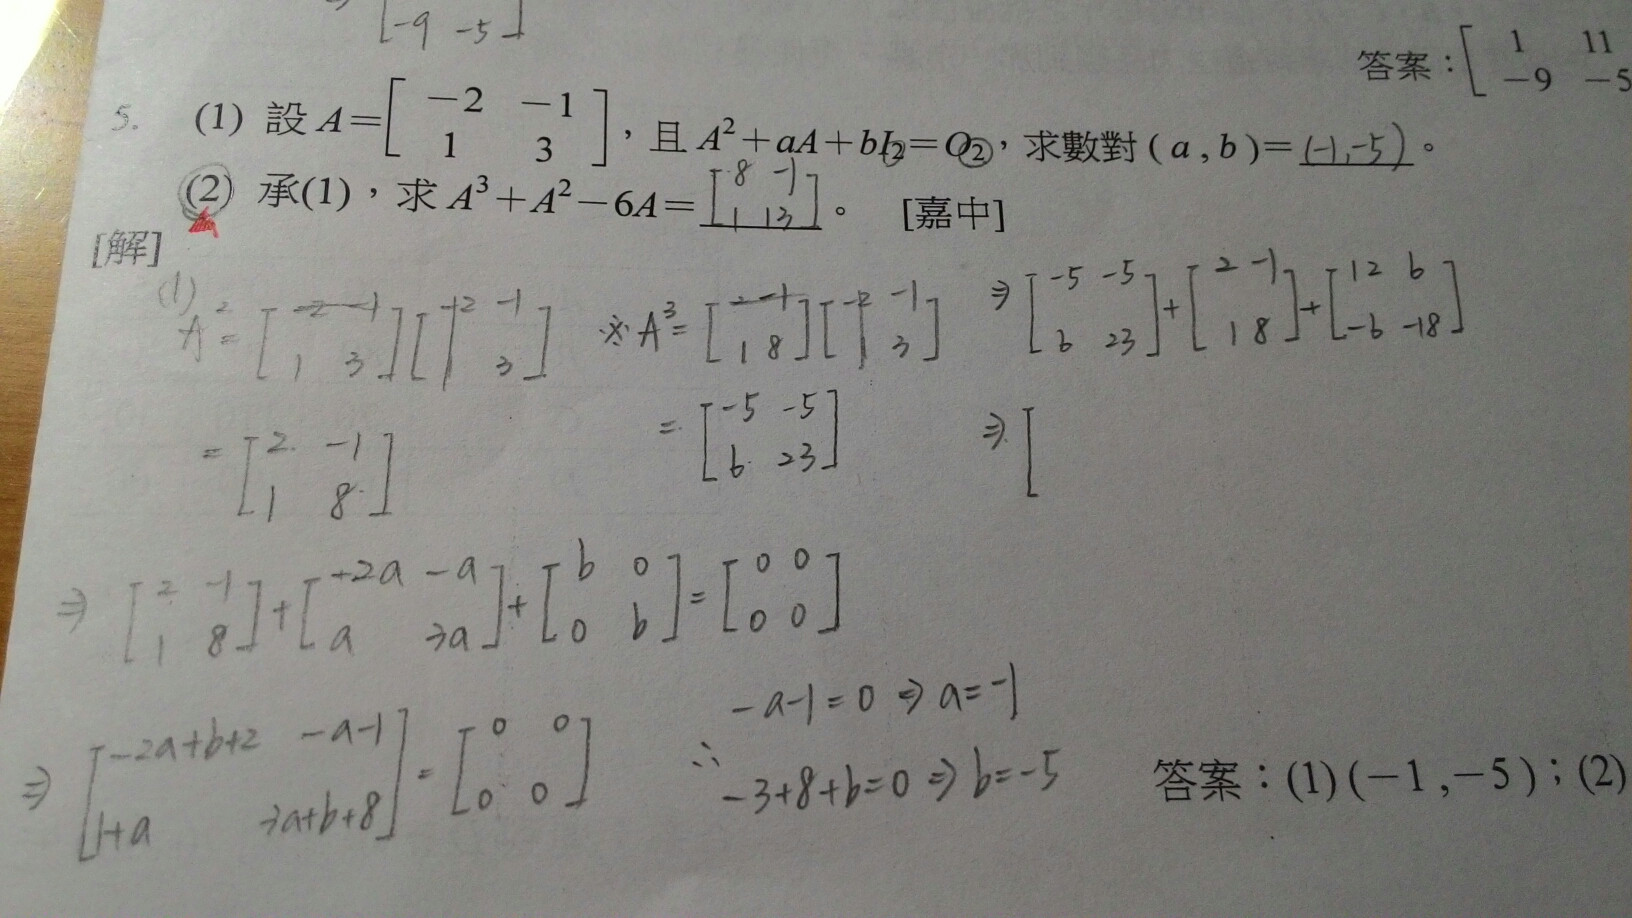 [-9 -5]
答案：[1 11
-9 -5
5. (1) 設 A=[-2 -1; 1 3]，且 A²+aA+bI₂=O₂，求數對 (a,b)=(-1,-5)。
(2) 承(1)，求 A³+A²-6A=[8 -1; 1 13]。 [嘉中]
[解]
(1)
A²=[-2 -1; 1 3][-2 -1; 1 3] ※A³=[2 -1; 1 8][-2 -1; 1 3] ⇒[-5 -5; 6 23]+[2 -1; 1 8]+[12 6; -6 -18]
=[2 -1; 1 8] =[-5 -5; 6 23] ⇒[
⇒[2 -1; 1 8]+[-2a -a; a 3a]+[b 0; 0 b]=[0 0; 0 0]
⇒[-2a+b+2 -a-1; 1+a 3a+b+8]=[0 0; 0 0] ∴ -a-1=0 ⇒ a=-1
-3+8+b=0 ⇒ b=-5
答案：(1)(-1,-5)；(2)